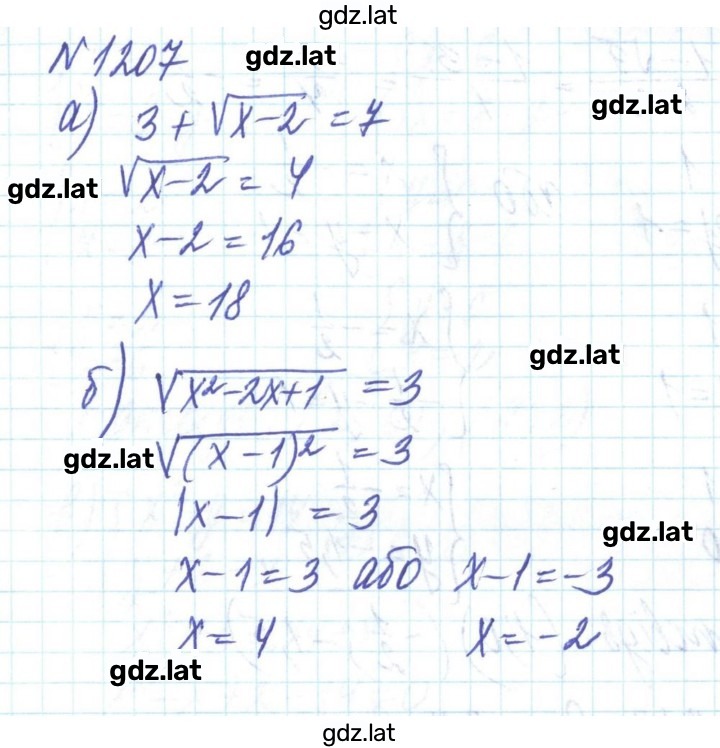 gdz.lat
№1207 gdz.lat
а) 3 + √(x-2) = 7 gdz.lat
gdz.lat √(x-2) = 4
x-2 = 16
x = 18
gdz.lat
б) √(x²-2x+1) = 3
gdz.lat √((x-1)²) = 3
|x-1| = 3
gdz.lat
x-1=3 або x-1=-3
x=4 x=-2
gdz.lat
gdz.lat